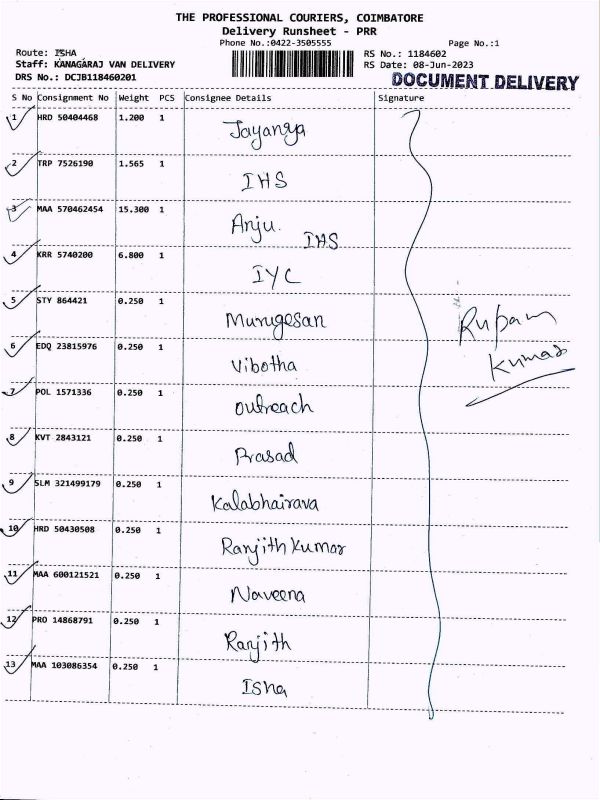 THE PROFESSIONAL COURIERS, COIMBATORE
Delivery Runsheet - PRR
Phone No.:0422-3505555 Page No.:1
Route: ISHA RS No.: 1184602
Staff: KANAGARAJ VAN DELIVERY RS Date: 08-Jun-2023
DRS No.: DCJB118460201 DOCUMENT DELIVERY
S No Consignment No Weight PCS Consignee Details Signature
1 HRD 50404468 1.200 1 Jayanga
2 TRP 7526190 1.565 1 IHS
3 MAA 570462454 15.300 1 Anju. IHS
4 KRR 5740200 6.800 1 IYC
5 STY 864421 0.250 1 Murugesan
Rupam
6 EDQ 23815976 0.250 1 Vibotha
Kumar
7 POL 1571336 0.250 1 Outreach
8 KVT 2843121 0.250 1 Prasad
9 SLM 321499179 0.250 1 Kalabhairava
10 HRD 50430508 0.250 1 Ranjith Kumar
11 MAA 600121521 0.250 1 Naveena
12 PRO 14868791 0.250 1 Ranjith
13 MAA 103086354 0.250 1 Isha